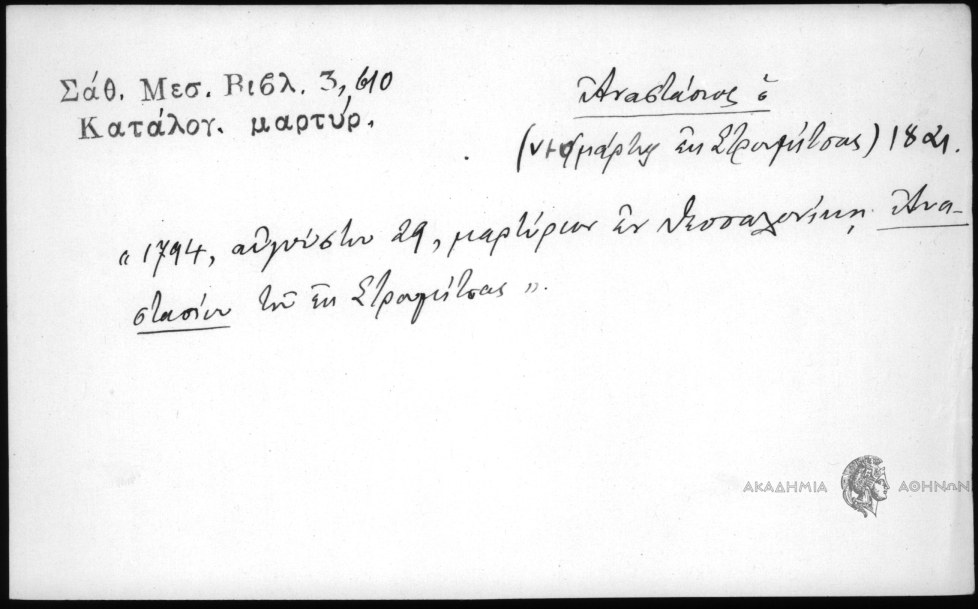 Σάθ. Μεσ. Βιβλ. 3, 610
Κατάλογ. μαρτύρ.
Ἀναστάσιος ὁ
(νεομάρτυς ἐκ Στρωμίτσας) 1821.
« 1794, αὐγούστου 29, μαρτύριον ἐν Θεσσαλονίκῃ Ἀνα-
στασίου τοῦ ἐκ Στρωμίτσας ».
ΑΚΑΔΗΜΙΑ ΑΘΗΝΩΝ